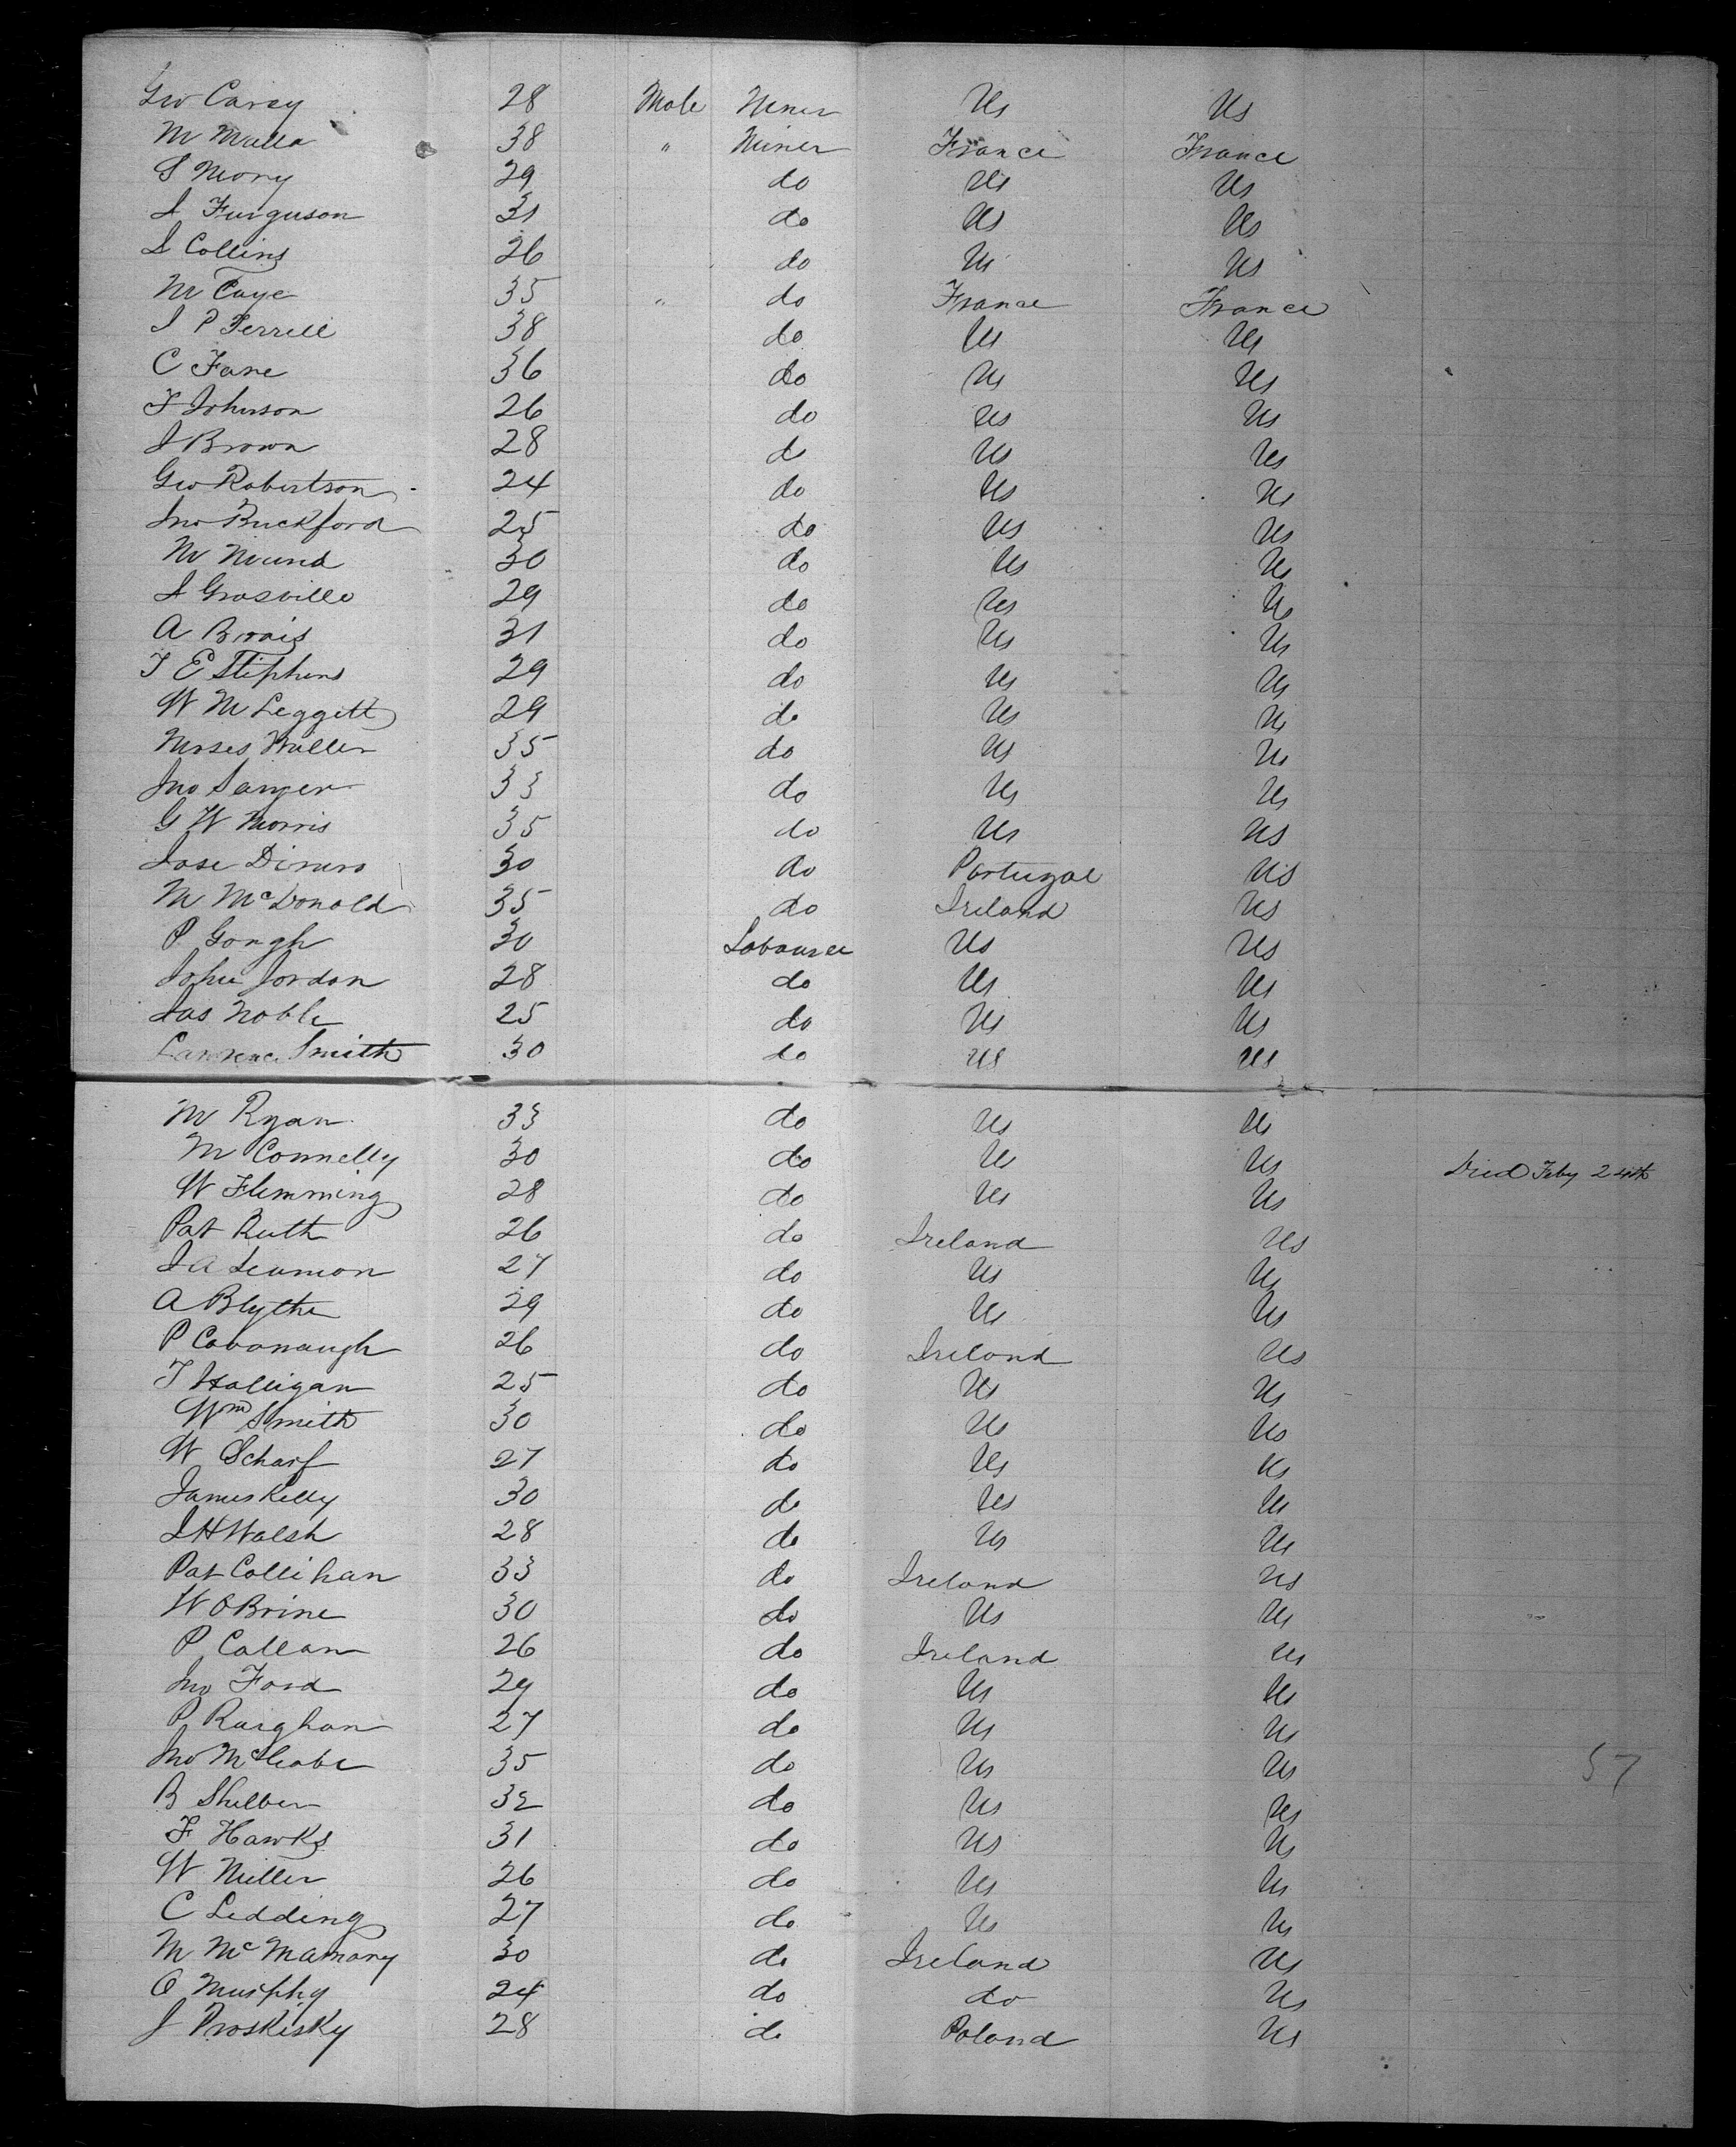 Geo Carey 28 Male Miner Us Us
M Mulla 38 " Miner France France
S Mory 29 do Us Us
J Furguson 31 do Us Us
S Collins 26 do Us Us
M Caye 35 " do France France
J P Terrell 38 do Us Us
C Fane 36 do Us Us
F Johnson 26 do Us Us
J Brown 28 do Us Us
Geo Robertson 24 do Us Us
Jno Buckford 25 do Us Us
M Mund 30 do Us Us
S Grasville 29 do Us Us
A Brais 31 do Us Us
T E Stephens 29 do Us Us
W M Leggett 29 do Us Us
Moses Waller 35 do Us Us
Jno Sanger 33 do Us Us
G W Morris 35 do Us Us
Jose 30 do Portugal Us
M McDonald 35 do Ireland Us
P Gongh 30 Labourer Us Us
John Jordan 28 do Us Us
Jas Noble 25 do Us Us
Lawrence Smith 30 do Us Us
M Ryan 33 do Us Us
M Connelly 30 do Us Us Died Feby 24th
W Flemming 28 do Us Us
Pat Ruth 26 do Ireland Us
J A Leamon 27 do Us Us
A Blythe 29 do Us Us
P Cavanaugh 26 do Ireland Us
T Halligan 25 do Us Us
Wm Smith 30 do Us Us
W Scharf 27 do Us Us
James Kelly 30 do Us Us
J H Walsh 28 do Us Us
Pat Callihan 33 do Ireland Us
W OBrine 30 do Us Us
P Callan 26 do Ireland Us
Jno Ford 29 do Us Us
P Raighan 27 do Us Us
Jno McCabe 35 do Us Us 57
B Shelber 32 do Us Us
F Hawks 31 do Us Us
W Miller 26 do Us Us
C Ledding 27 do Us Us
M McMamary 30 do Ireland Us
O Murphy 24 do do Us
J Proskisky 28 do Poland Us